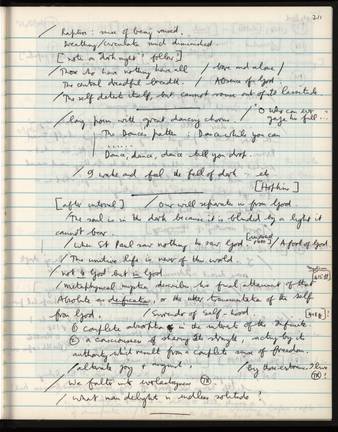 211
/ Raptures: sense of being
Breathing / circulate mind diminished
[note on dark night: follow]
/ Those who have nothing have all / love and alone /
The central dreadful breadth. / Absence of God.
/ The self detests itself, but cannot rouse out of its lassitude
/ Long poem with great dancing chorus / "O who can ever gaze his full...
The Dances patter: Dance while you can
......
Dance, dance, dance till you drop.
/ I wake and feel the fell of dark - etc
[Hopkins]
[after interval] / Our will separates us from God.
/ The soul is in the dark because it is blinded by a light it
cannot bear
/ When St Paul saw nothing he saw God / A fool of God
/ The unitive life is never of the world.
/ not to God but in God
/ metaphysical mystics describe the final attainment of that
Absolute as deification, or the utter transmutation of the self
from God. / Surrender of Self-hood.
① complete absorption in the interests of the Infinite
② a consciousness of sharing its strength, acting by its
authority which result from a complete sense of freedom.
/ alternate joy & anguish / By those extremes I live
/ We falter into
/ what man delights in endless solitude?